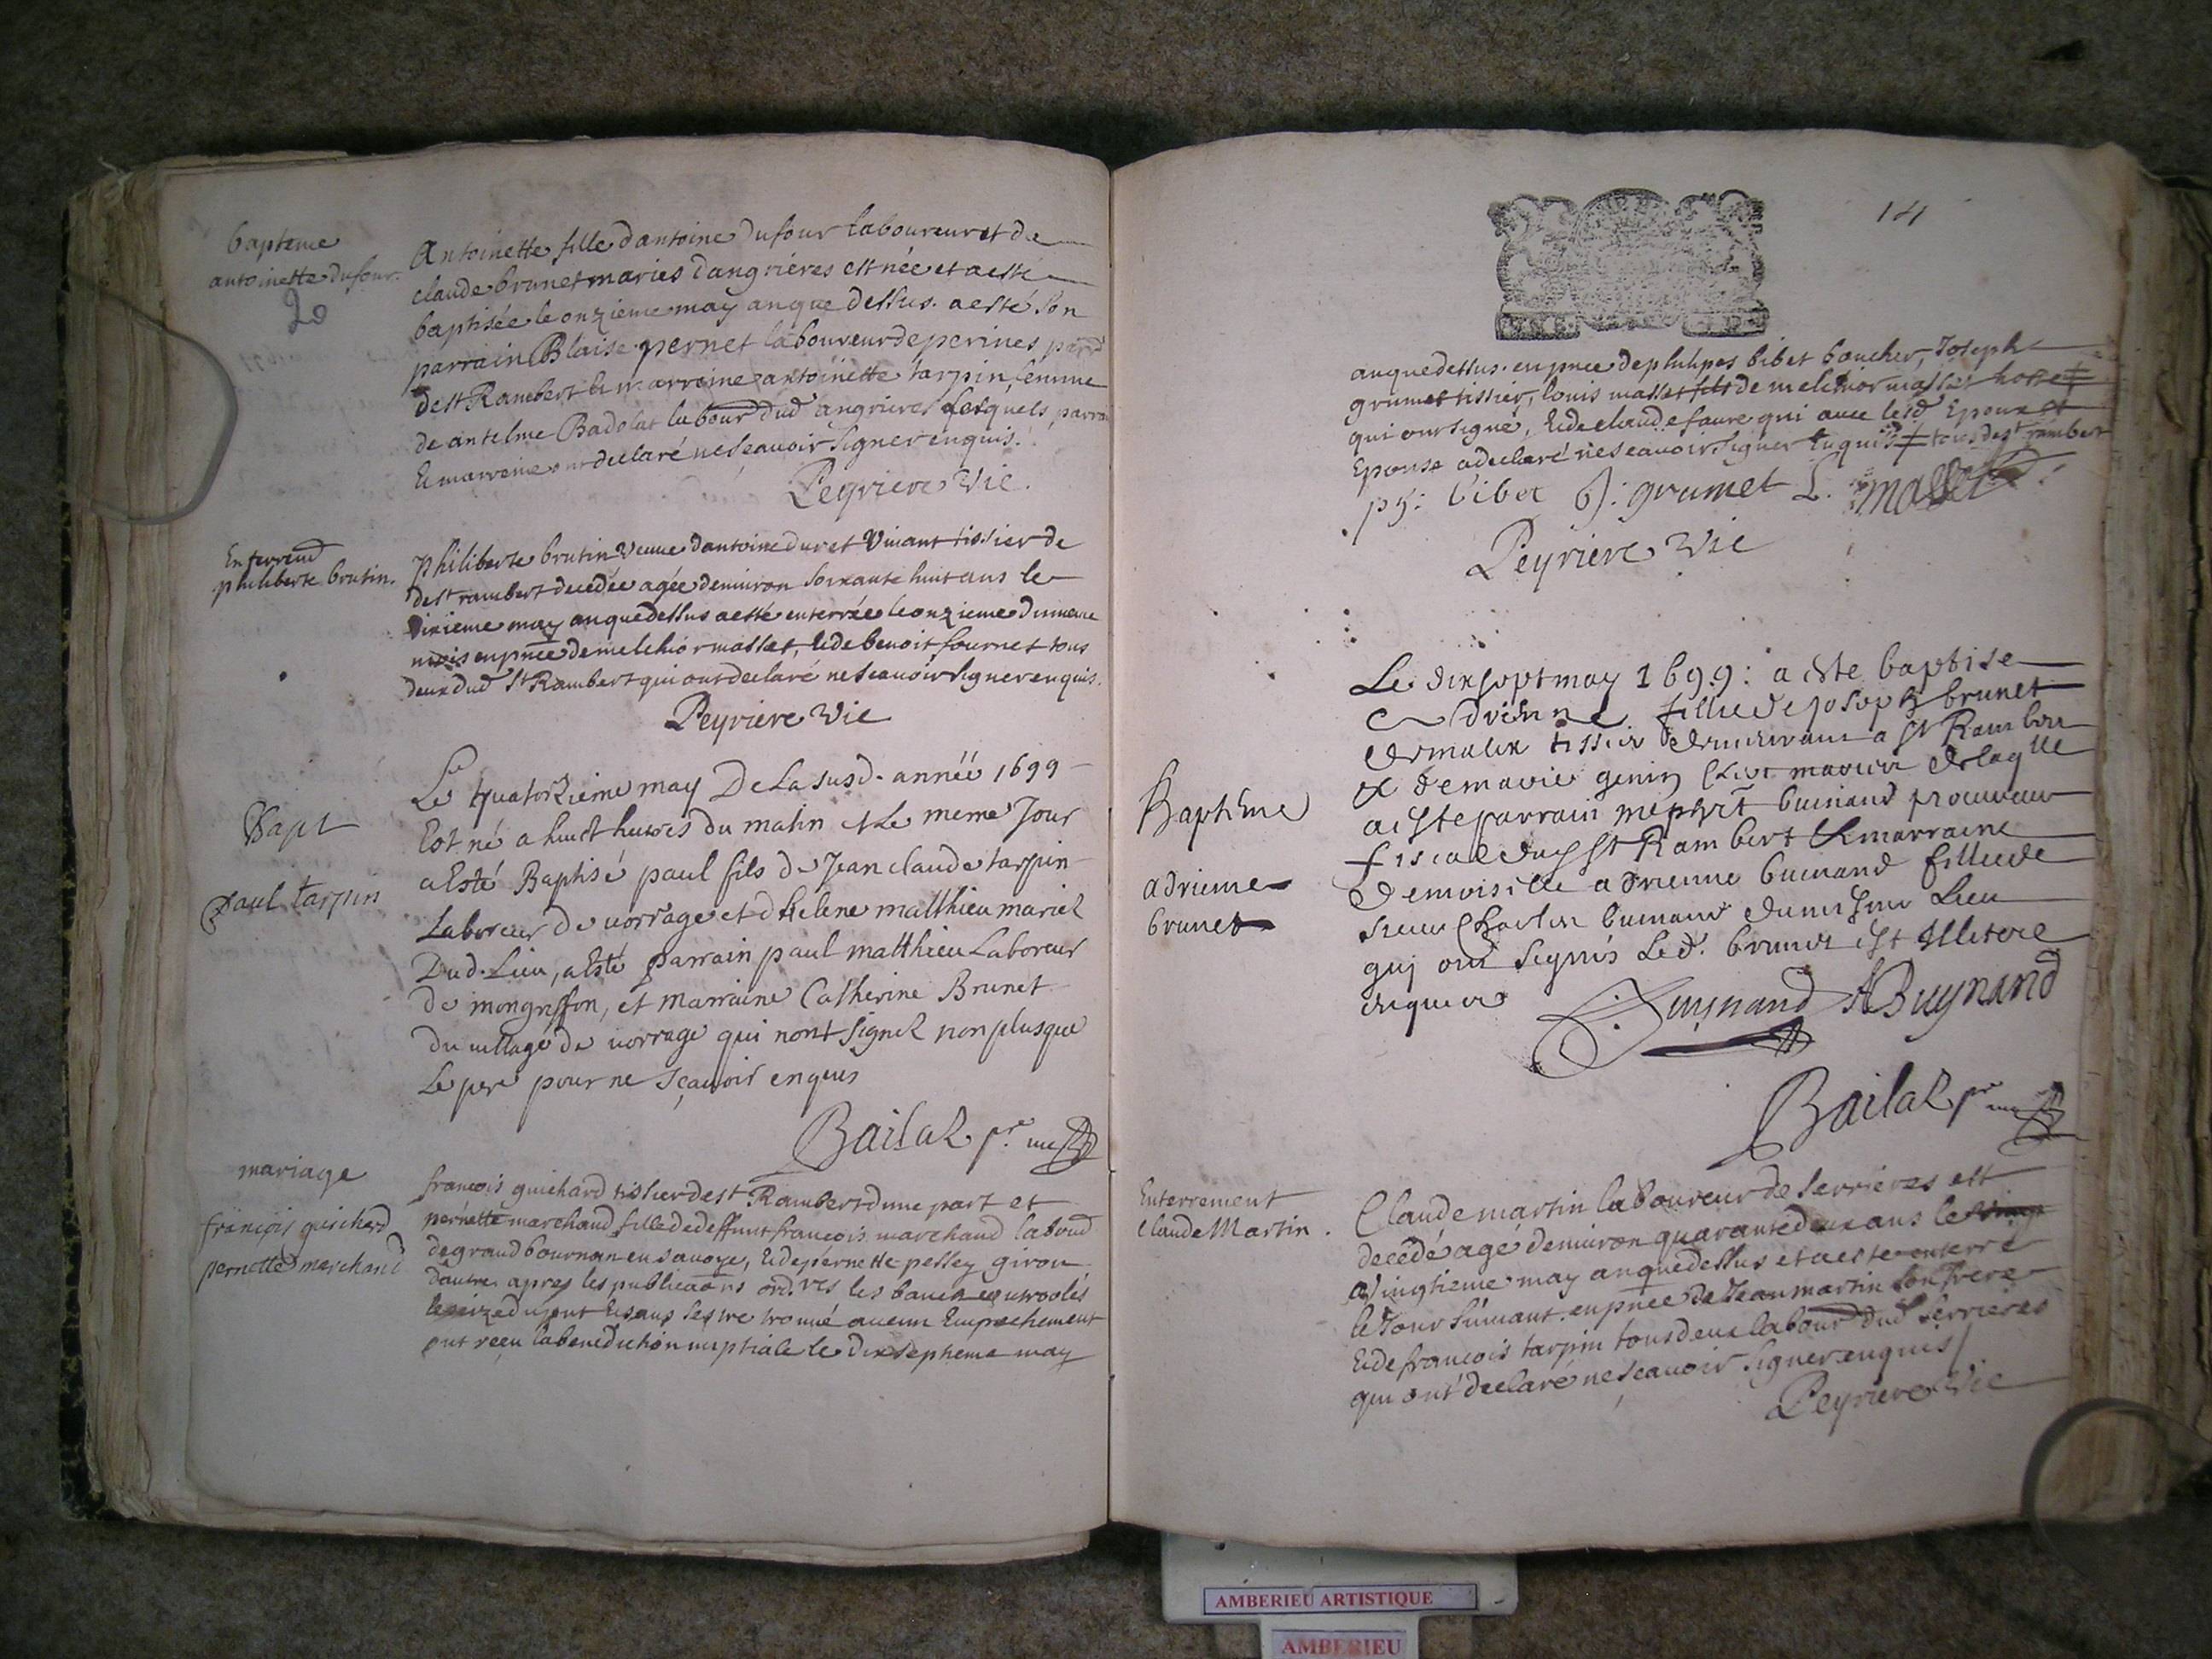 bapteme
antoinette dufour
20
Antoinette fille dantoine dufour laboureur et de
claude brunet mariés dangrieres est née et a esté
baptisée le onzieme may an que dessus. a esté son
parrain Blaise pernet laboureur de perines
de st Rambert & marreine antoinette tarpin, femme
de antelme Badolat labour dud angrieres lesquels parrain
& marreine ont declaré ne scauoir signer enquis.
Peyriere Vic.
philiberte brutin.
philiberte brutin veuue dantoine duret viuant tissier de
de st rambert decedée agée denuiron soixante huit ans le
dixieme may an que dessus a esté enterrée le onzieme du mesme
mois en pnce de melchior masset, & de benoit fournet tous
deux dud st Rambert qui ont declaré ne scauoir signer enquis.
Peyriere Vic
Bapt
paul tarpin
Le quatorzieme may De La susd. année 1699
Est né a huict heures du matin et Le meme Jour
a Esté Baptisé paul fils de Jean claude tarpin
Laboreur de vorrage et d helene matthieu mariez
Dud. Lieu, a Esté parrain paul matthieu Laboreur
de mongriffon, et marraine Catherine Brunet
du village de vorrage qui nont signez non plus que
Le pere pour ne sçauoir enquis
Bailat pre
mariage
françois guichard
pernette marchand
françois guichard tissier de st Rambert dune part et
pernette marchand fille de deffunt françois marchand
de grand bournan en sauoye, & de pernette pessey
dautre apres les publicaons
& sans sestre trouué aucun Empechement
ont receu la benediction nuptiale le dixseptieme may
14
an que dessus. en pnce de philipes bibet boucher, Joseph
grumet tissier, louis masset fils de melchior masset
qui ont signé, & de claude faure qui auec lesd Epoux et
Epouse a declaré ne scauoir signer Enquis ≠ tous de st rambert
ph: bibet J: grumet L. masset
Peyriere Vic
Baptême
adrienne
brunet
Le dixsept may 1699: a este baptise
Adrienne fillie de joseph brunet
tissier a st Rambert
& de marie genin mariez de laqlle
a este parrain buinand procureur
fiscal dud st Rambert & marraine
demoiselle adrienne buinand fillie de
sieur Charles buinand du mesme Lieu
qui ont signés Led. brunet est Illiteré
enquis
Buynand ABuynand
Bailat pre
Enterrement
Claude Martin.
Claude martin laboureur de serrieres est
decedé agé denuiron quarante deux ans le
vingtieme may an que dessus et a este enterré
le Jour suiuant. en pnce de Jean martin son frere
& de françois tarpin tous deux labour dud serrieres
qui ont declaré ne scauoir signer enquis
Peyriere Vic
AMBERIEU ARTISTIQUE
AMBERIEU